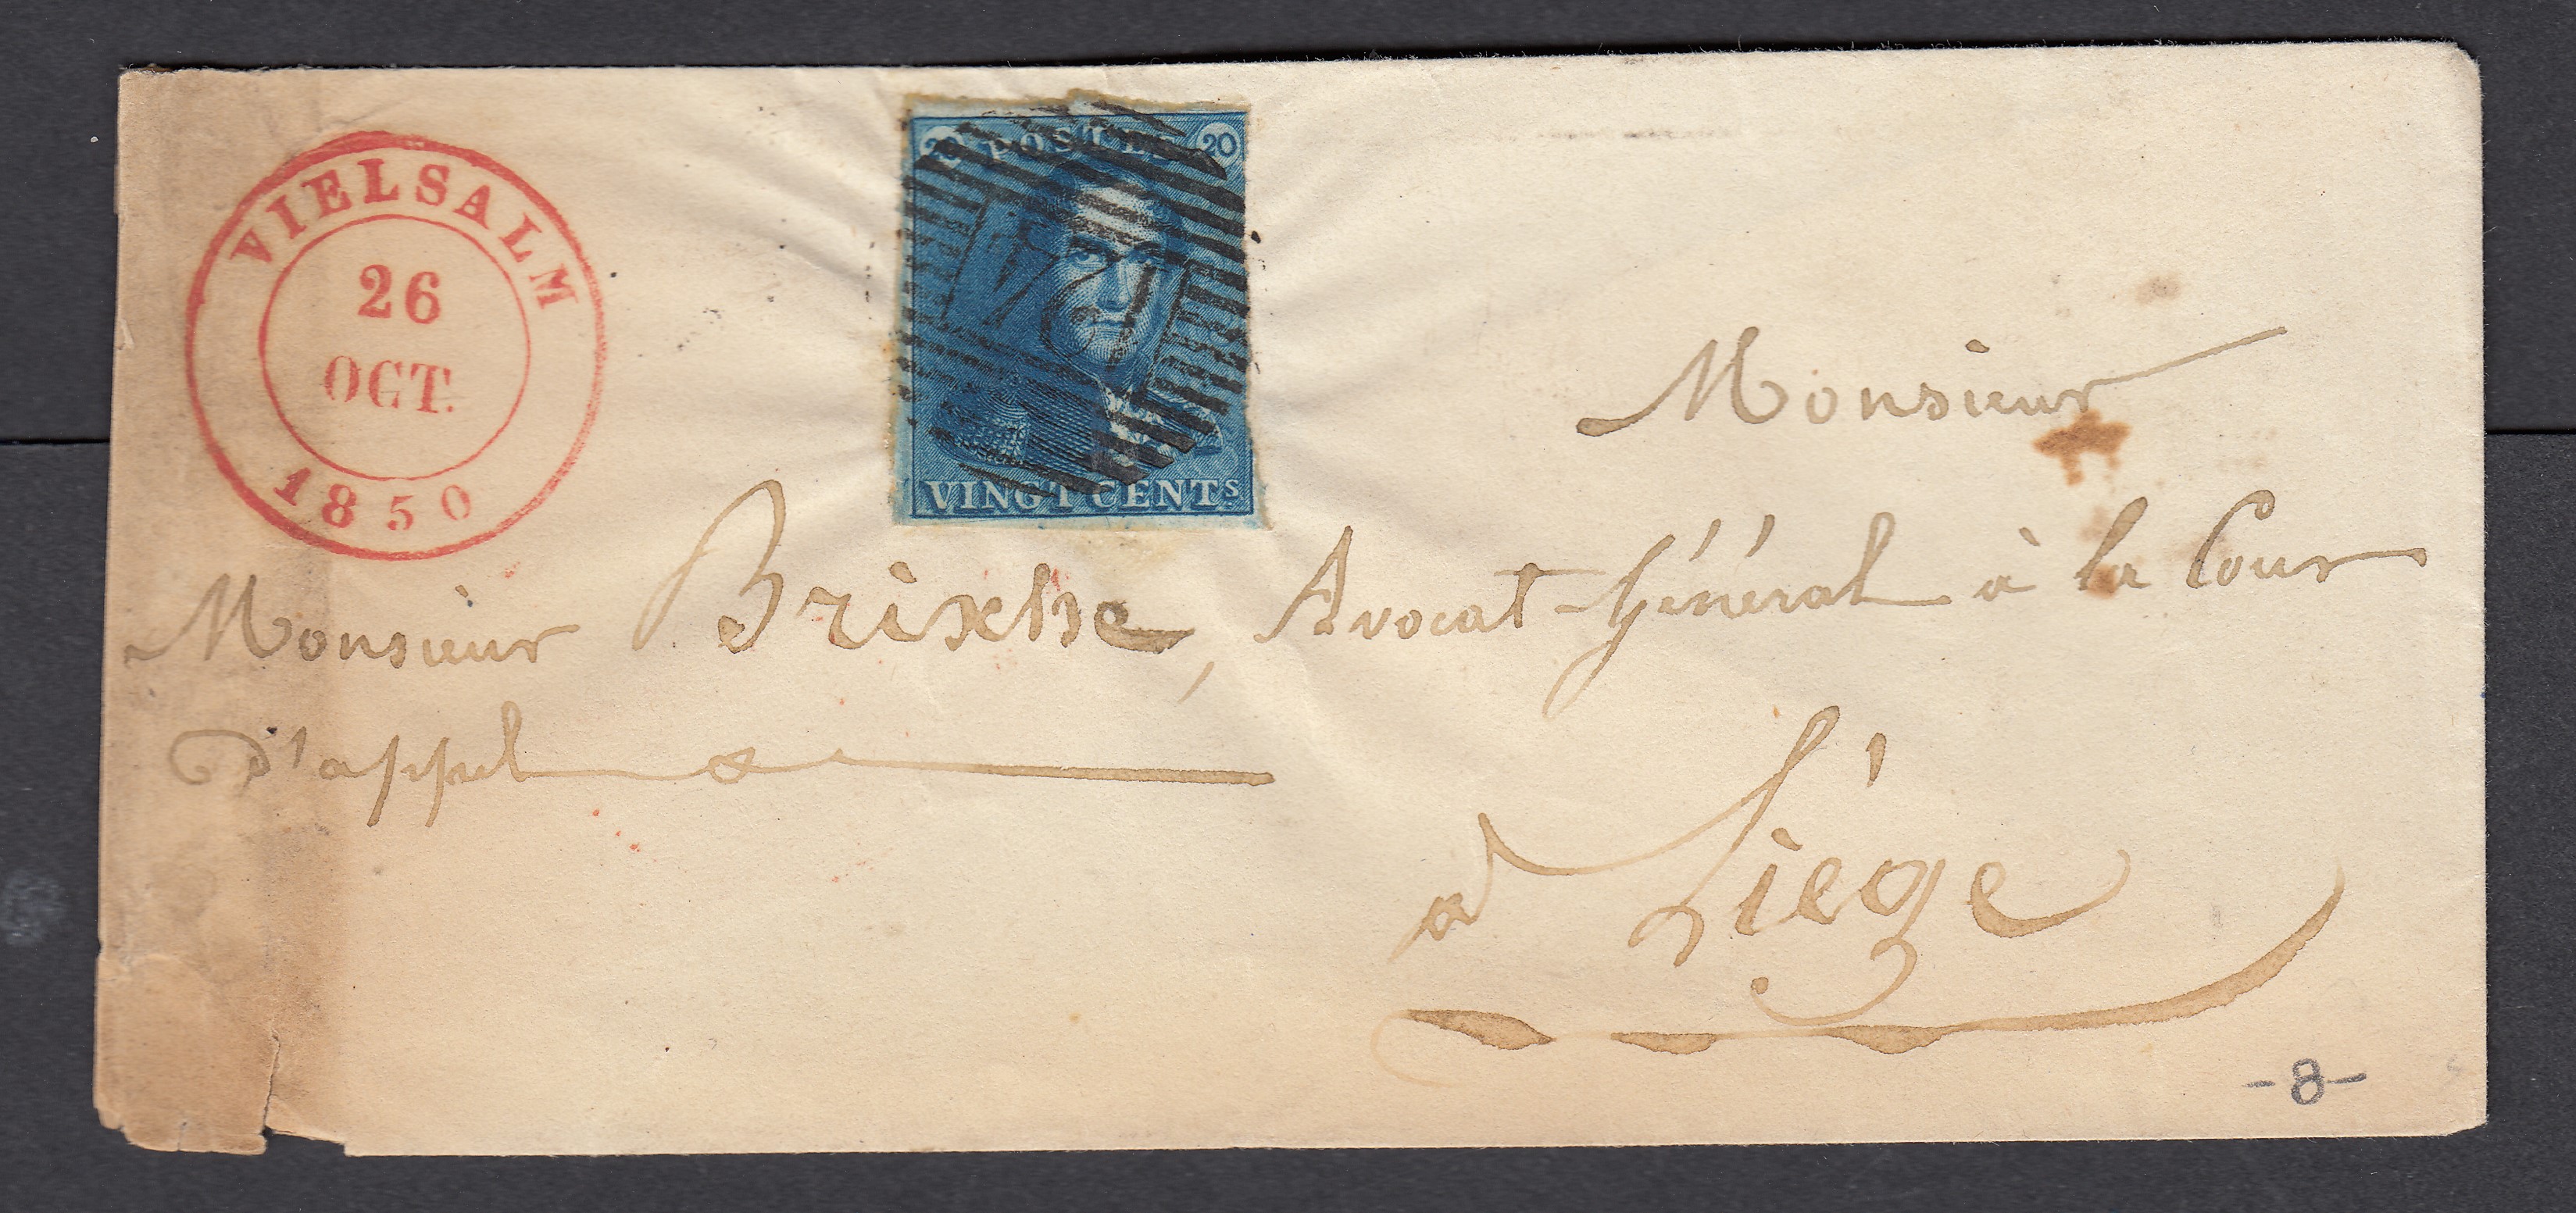 VIELSALM
26
OCT.
1850
20 POSTES 20
VINGT CENTS.
Monsieur
Monsieur Brixhe, Avocat-Général à la Cour
d'appel
à Liége
-8-